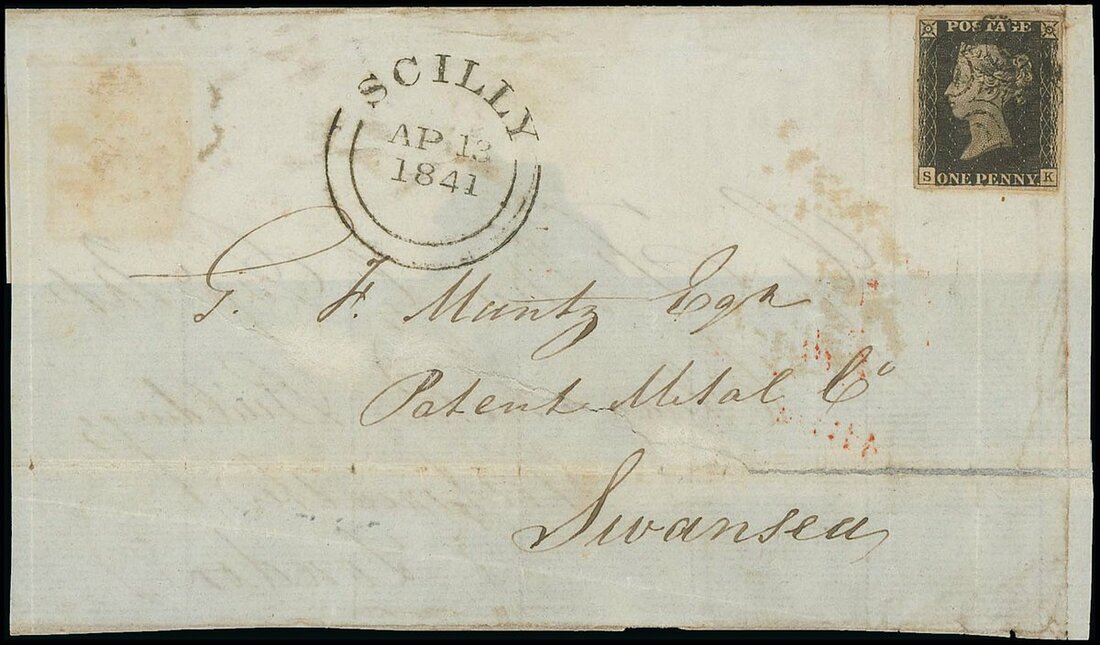 POSTAGE
S ONE PENNY K
SCILLY
AP 13
1841
G. F. Muntz Esqr
Patent Metal Co
Swansea